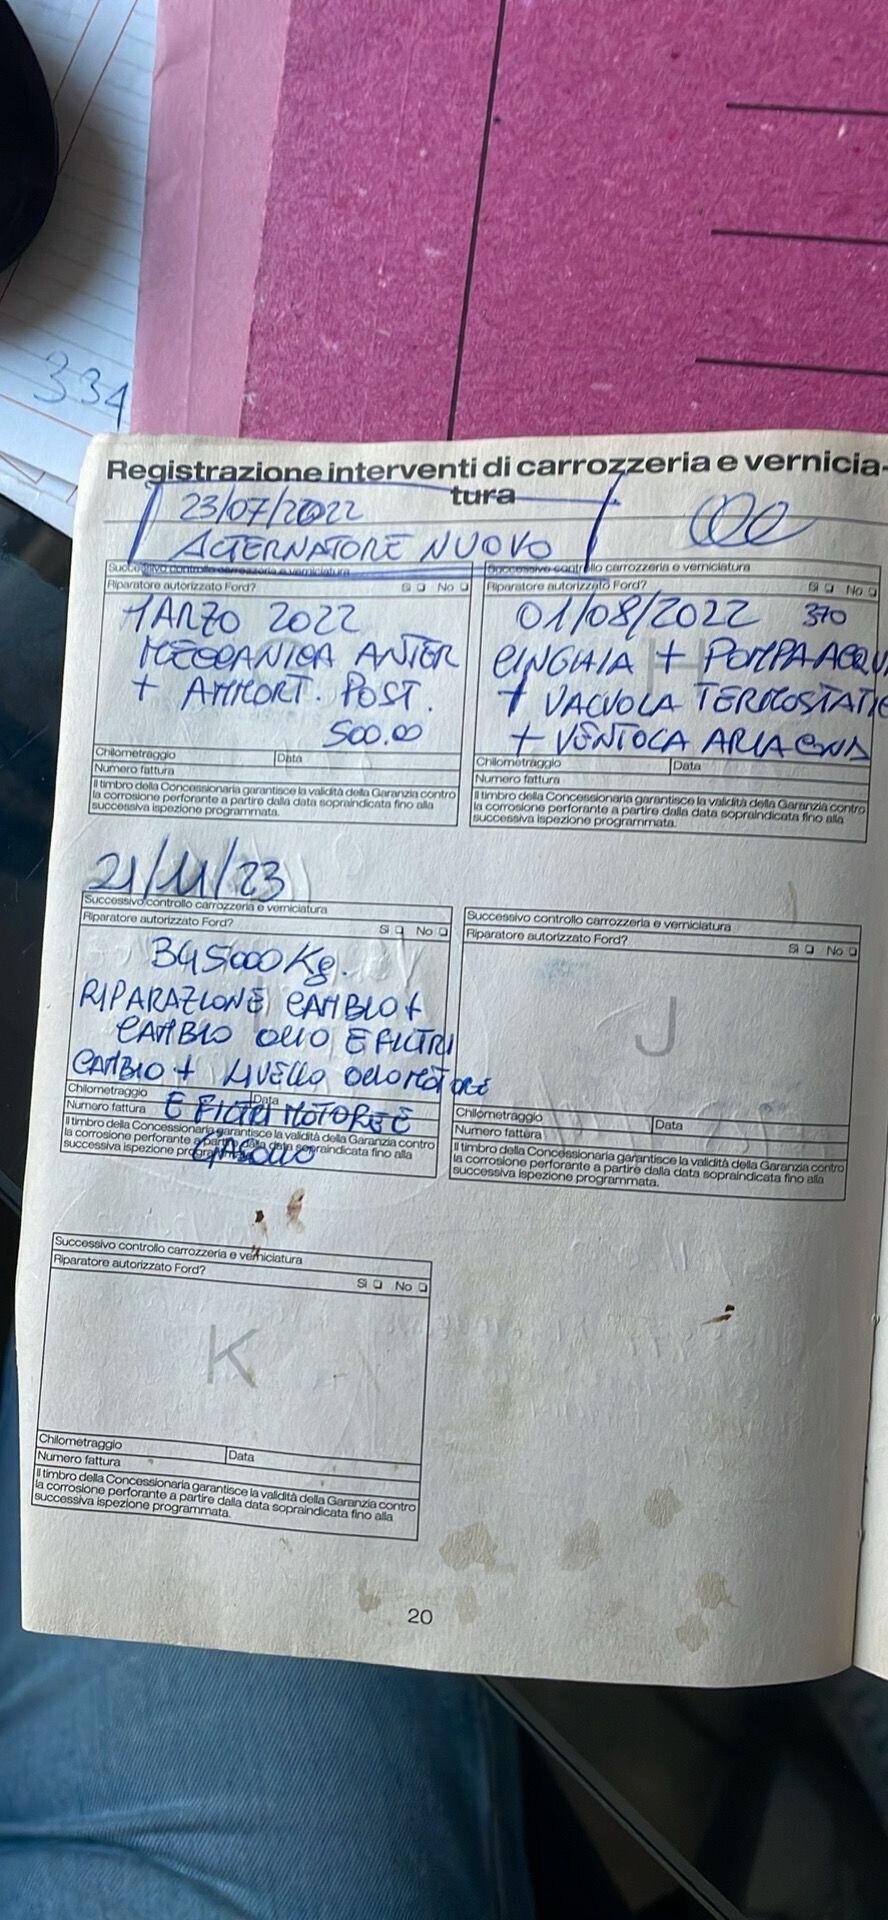 334
Registrazione interventi di carrozzeria e vernicia-
tura
23/07/2022
ALTERNATORE NUOVO
Successivo controllo carrozzeria e verniciatura
Riparatore autorizzato Ford?
Sì No
MARZO 2022
MECCANICA ANTER
+ AMMORT. POST.
500.00
Chilometraggio
Data
Numero fattura
Il timbro della Concessionaria garantisce la validità della Garanzia contro
la corrosione perforante a partire dalla data sopraindicata fino alla
successiva ispezione programmata.
Successivo controllo carrozzeria e verniciatura
Riparatore autorizzato Ford?
Sì No
H
01/08/2022 370
CINGHIA + POMPA ACQU
+ VALVOLA TERMOSTATIC
+ VENTOLA ARIA
Chilometraggio
Data
Numero fattura
Il timbro della Concessionaria garantisce la validità della Garanzia contro
la corrosione perforante a partire dalla data sopraindicata fino alla
successiva ispezione programmata.
21/11/23
Successivo controllo carrozzeria e verniciatura
Riparatore autorizzato Ford?
Sì No
345000 Kg.
RIPARAZIONE CAMBIO +
CAMBIO OLIO E FILTRI
CAMBIO + LIVELLO OLIO MOTORE
E FILTRI MOTORE E
GASOLIO
Chilometraggio
Data
Numero fattura
Il timbro della Concessionaria garantisce la validità della Garanzia contro
la corrosione perforante a partire dalla data sopraindicata fino alla
successiva ispezione programmata.
Successivo controllo carrozzeria e verniciatura
Riparatore autorizzato Ford?
Sì No
J
Chilometraggio
Data
Numero fattura
Il timbro della Concessionaria garantisce la validità della Garanzia contro
la corrosione perforante a partire dalla data sopraindicata fino alla
successiva ispezione programmata.
Successivo controllo carrozzeria e verniciatura
Riparatore autorizzato Ford?
Sì No
K
Chilometraggio
Data
Numero fattura
Il timbro della Concessionaria garantisce la validità della Garanzia contro
la corrosione perforante a partire dalla data sopraindicata fino alla
successiva ispezione programmata.
20